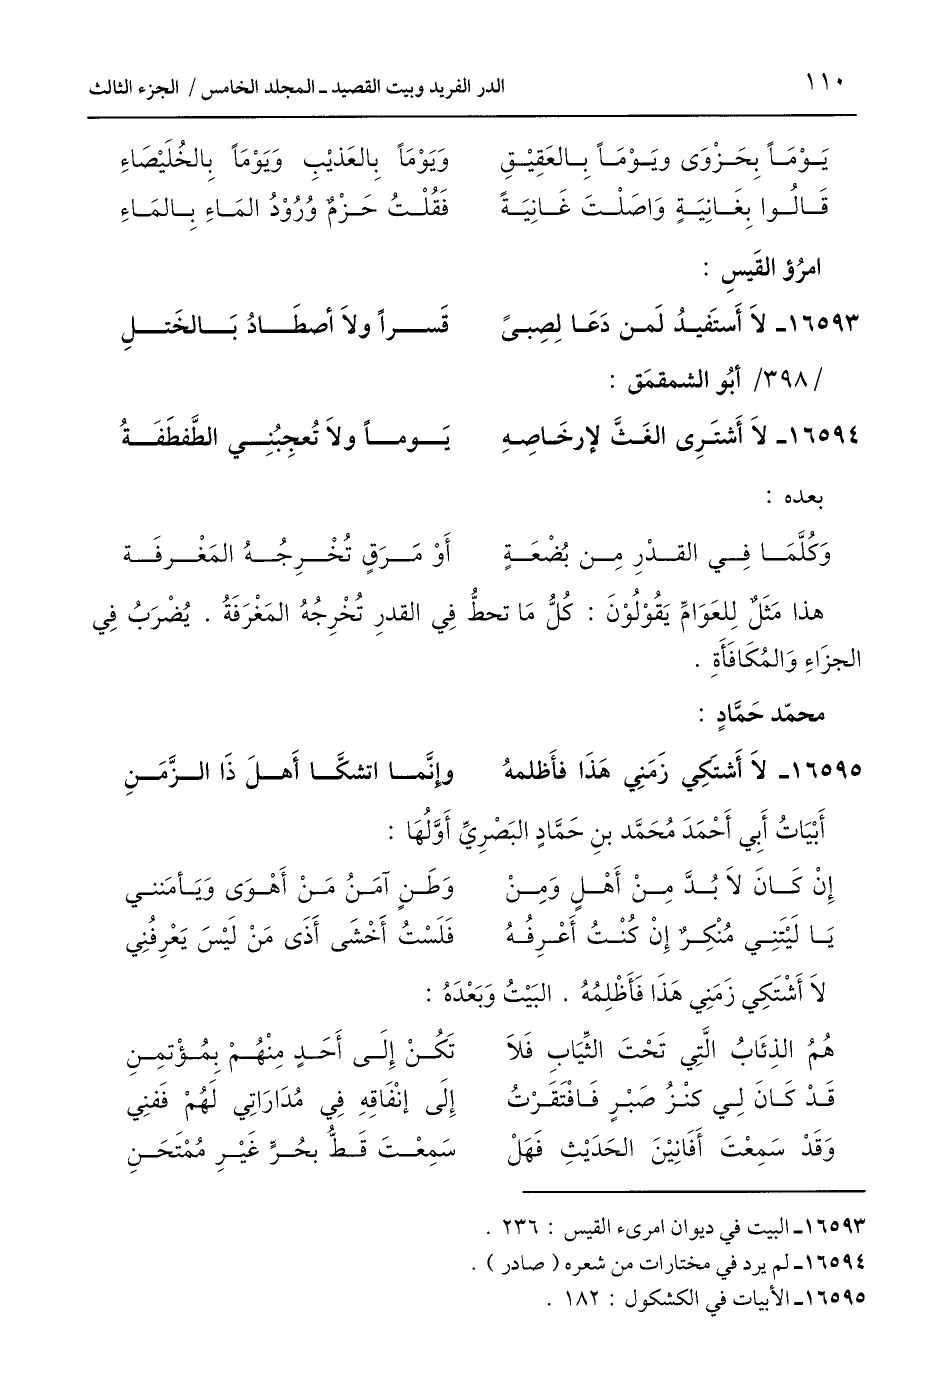 ١١٠ الدر الفريد وبيت القصيد ـ المجلد الخامس / الجزء الثالث
يَـوْمَـاً بِحَـزْوَى ويَـوْمَـاً بـالعَقِيْـقِ وَيَوْمَاً بِالعَذيْبِ وَيَوْمَاً بِالخُلَيْصَاءِ
قَـالُـوا بِغَـانِيَـةٍ وَاصَلْـتَ غَـانِيَـةً فَقُلْـتُ حَـزْمٌ وُرُوْدُ المَـاءِ بِـالمَـاءِ
امرُؤ القَيسِ :
١٦٥٩٣ـ لاَ أَستَفيدُ لَمن دَعَـا لِصِبـىً قَـســـراً ولاَ أصطَـــادُ بَـــالخَتـــلِ
/٣٩٨/ أبُو الشمقمَق :
١٦٥٩٤ـ لاَ أَشتَرِى الغَثَّ لإرخَـاصِـهِ يَـــومـــاً ولاَ تُعجِبُنِـــي الطَّفطَفَـــةُ
بعده :
وَكُلَّمَـا فِـي القـدْرِ مِـن بُضْعَـةٍ أَوْ مَـرَقٍ تُخْـرِجُـهُ المَغْـرِفَـة
هذا مَثَلٌ لِلعَوَامِّ يَقُوْلُوْنَ : كُلُّ مَا تحطُّ فِي القدرِ تُخْرِجُهُ المَغْرَفَةُ . يُضْرَبُ فِي
الجزَاءِ وَالمُكَافَأَةِ .
محمّد حَمَّادٍ :
١٦٥٩٥ـ لاَ أَشتَكِي زَمَنِي هَذَا فأَظلمهُ وإنَّمـا اتشكَّـا أَهـلَ ذَا الـزَّمَـنِ
أَبْيَاتُ أَبِي أَحْمَدَ مُحَمَّد بنِ حَمَّادٍ البَصْرِيِّ أَوَّلُهَا :
إِنْ كَـانَ لاَ بُـدَّ مِـنْ أَهْـلٍ وَمِـنْ وَطَـنٍ آمَـنُ مَـنْ أَهْـوَى وَيَـأمَننـي
يَـا لَيْتَنِـي مُنْكِـرٌ إِنْ كُنْـتُ أَعْـرِفُـهُ فَلَسْتُ أَخْشَى أَذَى مَنْ لَيْسَ يَعْرِفُنِي
لاَ أَشْتَكِي زَمَنِي هَذَا فَأَظْلِمُهُ . البَيْتُ وَبَعْدَهُ :
هُمُ الذِئَابُ الَّتِي تَحْتَ الثِّيَابِ فَلاَ تَكُـنْ إِلَـى أَحَـدٍ مِنْهُـمْ بِمُـؤْتِمـنِ
قَـدْ كَـانَ لِـي كَنْـزُ صَبْـرٍ فَـافْتَقَـرْتُ إِلَى إِنْفَاقِهِ فِي مُدَارَاتِي لَهُمْ فَفَنِي
وَقَدْ سَمِعْتَ أَفَانِيْنَ الحَدِيْثِ فَهَلْ سَمِعْـتَ قَـطُّ بِحُـرٍّ غَيْـرِ مُمْتَحَـنِ
١٦٥٩٣ـ البيت في ديوان امرىء القيس : ٢٣٦ .
١٦٥٩٤ـ لم يرد في مختارات من شعره ( صادر ) .
١٦٥٩٥ـ الأبيات في الكشكول : ١٨٢ .